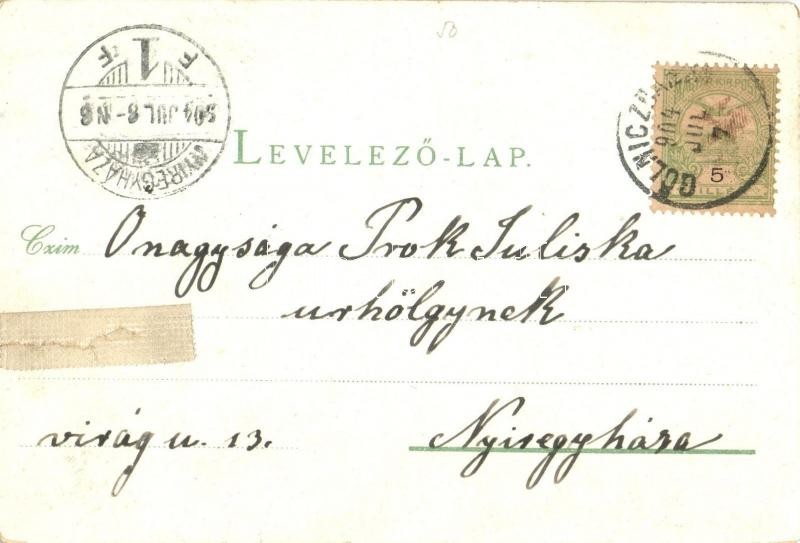 50
F 1 F
904 JUL 8-N 6
NYIREGYHÁZA
GÖLNICZBÁNYA
904
JUL
7
5
LEVELEZŐ-LAP.
Czim Onagysága Prok Juliska
urhölgynek
virág u. 13. Nyiregyháza